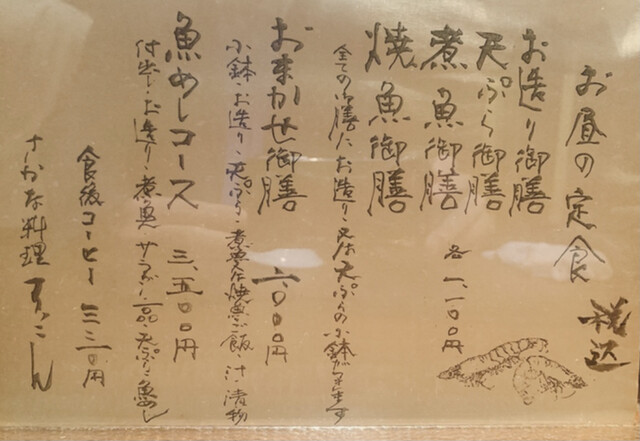 お昼の定食
税込
お造り御膳
天ぷら御膳
煮魚御膳
焼魚御膳
各一、一〇〇円
全ての御膳に、お造り又は天ぷらの小鉢がつきます
おまかせ御膳 二、〇〇〇円
小鉢・お造り・天ぷら・煮魚又は焼魚・ご飯・汁・漬物
魚めしコース 三、五〇〇円
付出し・お造り・煮魚・サラダ・一品・天ぷら・魚めし
食後コーヒー 三三〇円
さかな料理